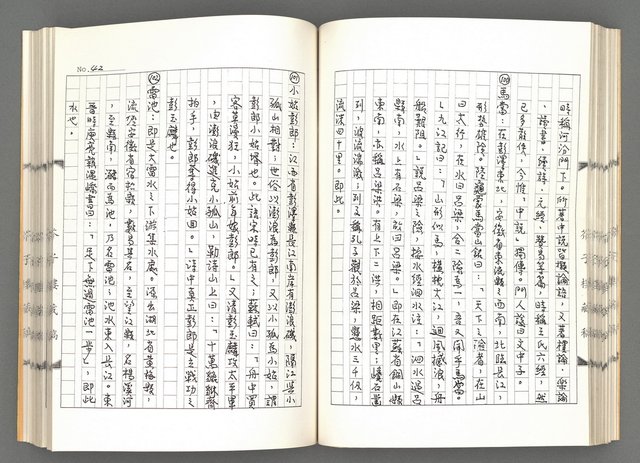 時稱河汾門下。所著中說皆擬論語,又著禮論、樂論
、續書、續詩、元經、贊易等篇,時稱王氏六經,然
已多散佚,今惟「中說」獨傳。門人諡曰文中子。
馬當:在彭澤東北,安徽省東流縣之西南,北臨長江,
形勢雄險。陸龜蒙馬當山銘曰:「天下之險者,在山
曰太行,在水曰呂梁,合二險為一,吾又聞乎馬當。」
「九江記曰:「山形似馬,橫枕大江,迴風撼浪,舟
船艱阻。」說呂梁之險,按水經泗水注:「泗水過呂
縣南,水上有石梁,故曰呂梁。」即在江蘇省銅山縣
東南,亦稱呂梁洪。有上下二洪,相距數里,
列,波流洶湧;列子稱孔子觀於呂梁,懸水三十仞,
流沫四十里。即此。
No. 42
小姑彭郎:江西省彭澤縣長江南岸有澎浪磯,隔江與小
孤山相對;世俗以澎浪為彭郎,又以小孤為小姑,謂
彭郎小姑壻也。此語宋時已有之;蘇軾曰:「舟中賈
客莫漫狂,小姑前年嫁彭郎。」又清彭玉麟攻太平軍
,由澎浪磯進克小孤山,勒詩山上曰:「十萬貔貅齊
拍手,彭郎奪得小姑回。」詩中真正彭郎是立戰功之
彭玉麟也。
雷池:即是大雷水之下游集水處。源出湖北省黃梅縣,
流經安徽省宿松縣,
,至縣南,積而為池,乃名雷池。池水東入長江。東
晉時庾亮報溫嶠書曰:「足下無過雷池一步」,即此
水也。